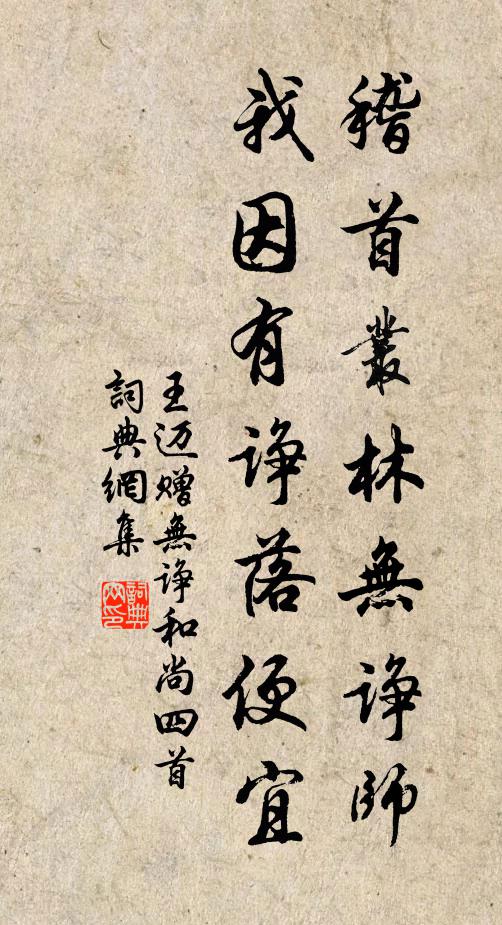 稽首叢林無諍師
我因有諍落便宜
王迈贈無諍和尚四首
詞典網集
詞典网印